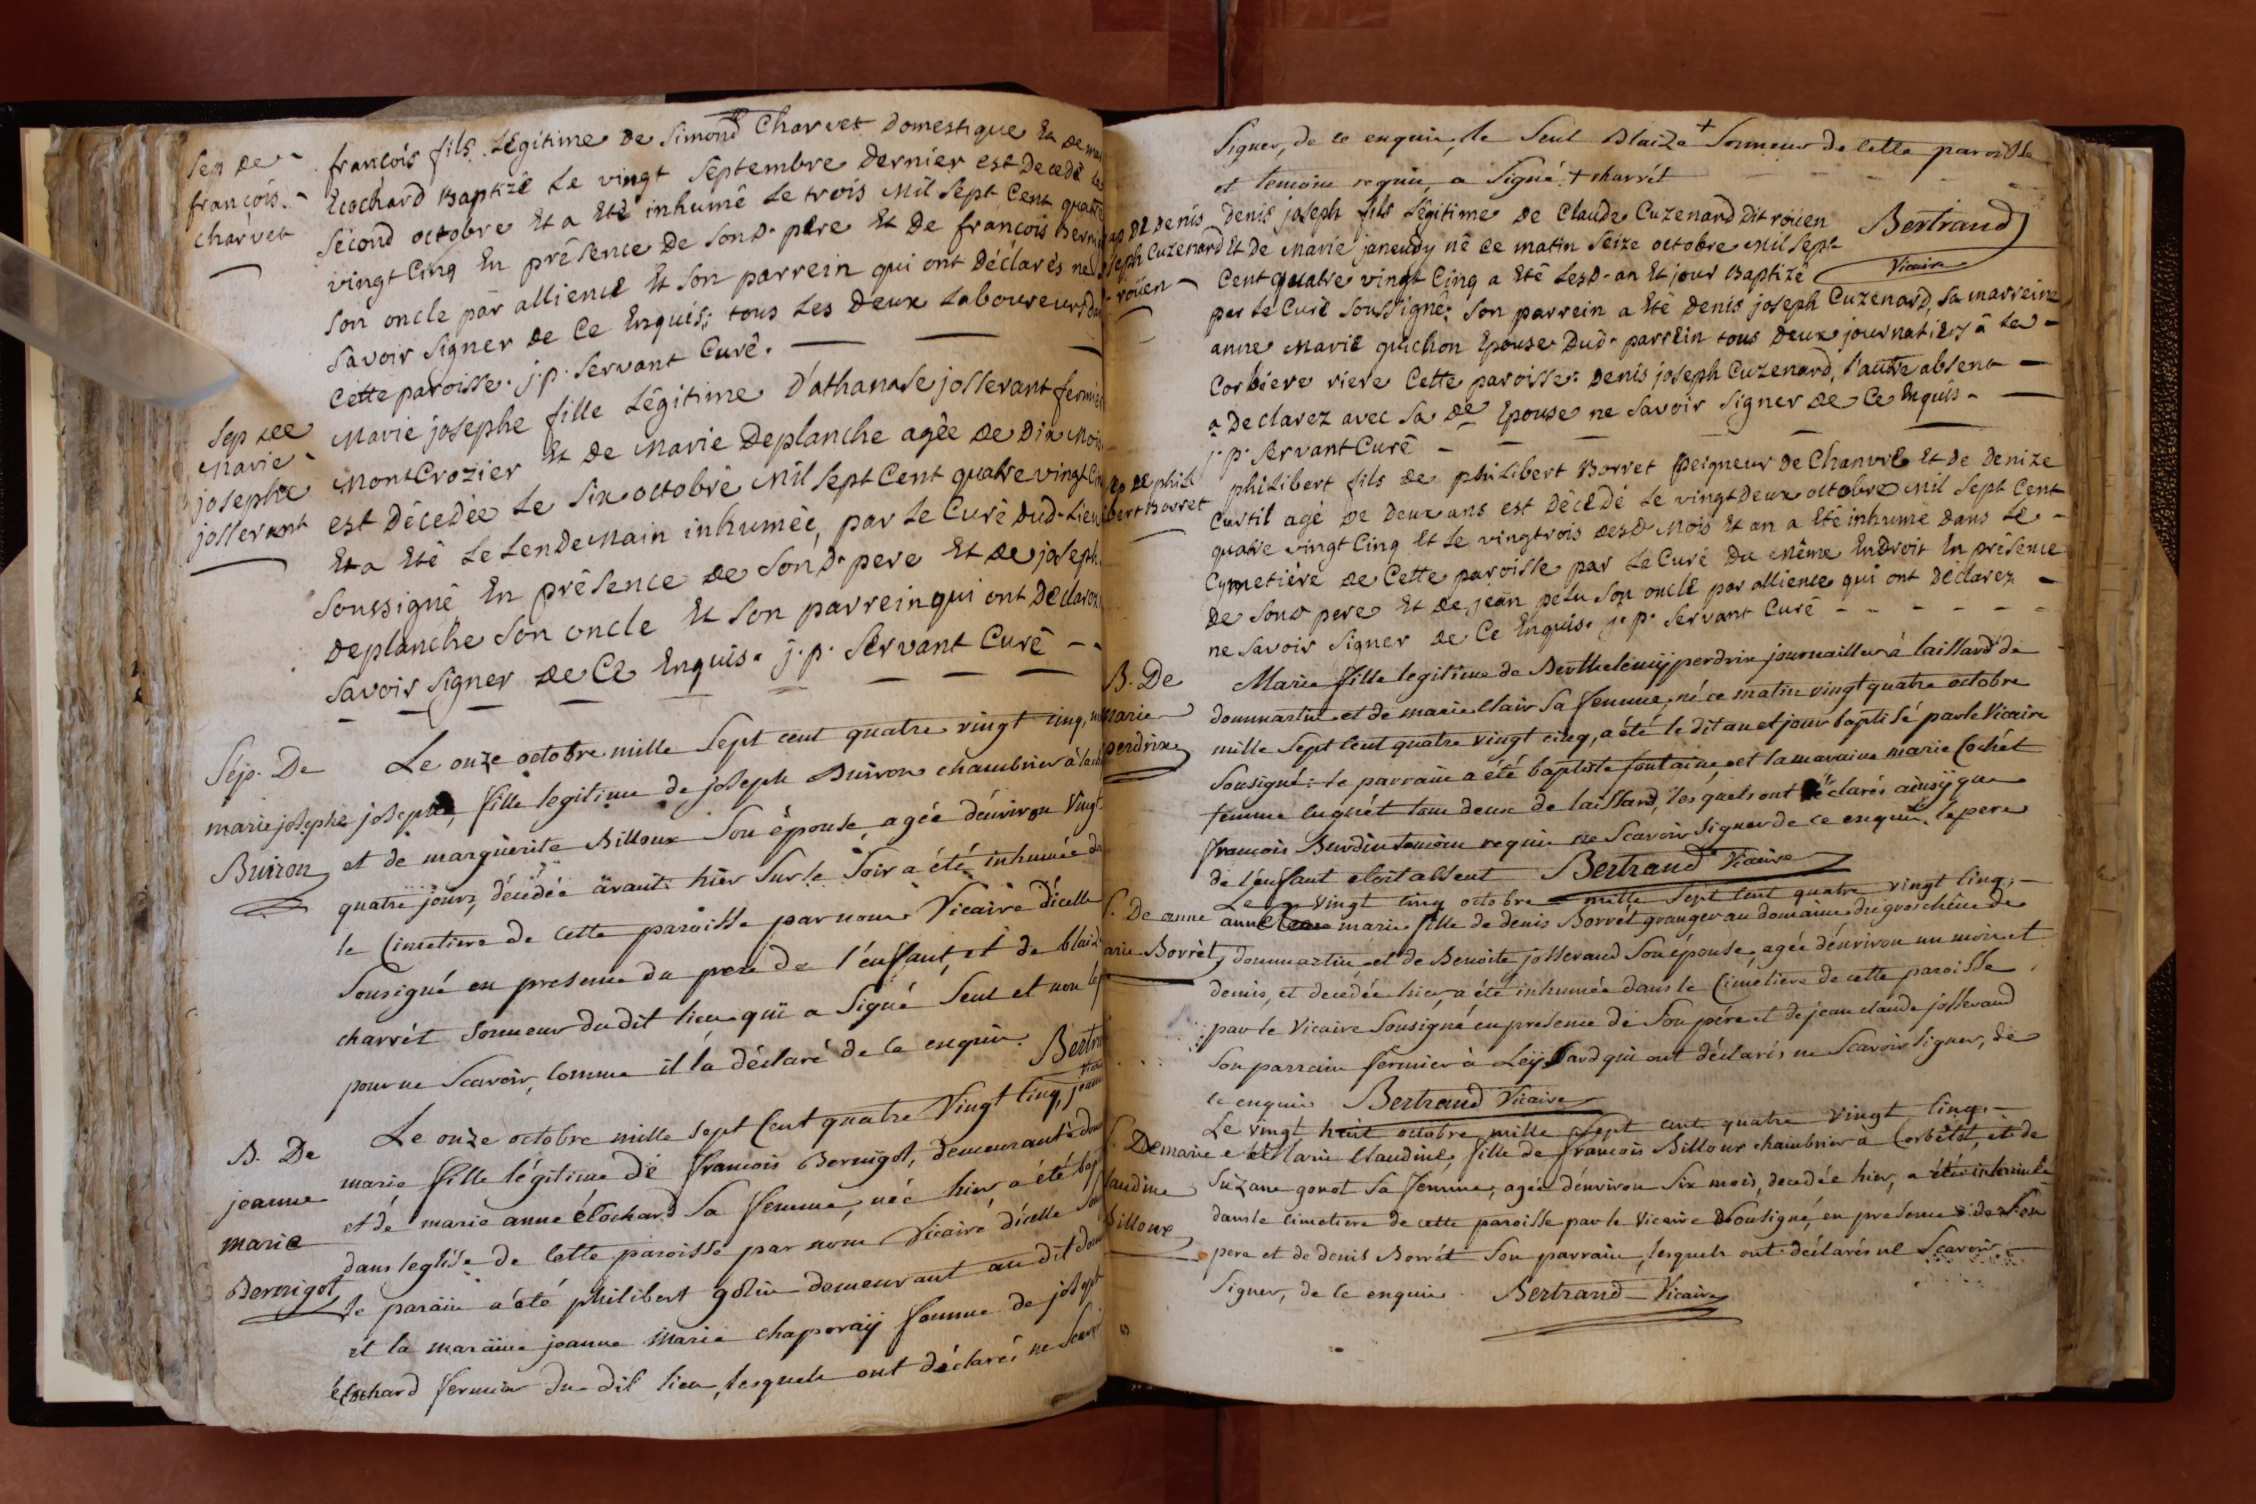 Sep De
françois
charvet
françois fils Légitime De Simond Charvet Domestique Et De
Ecochard Baptizé Le vingt Septembre Dernier est Decedé Le
Second octobre Et a Eté inhumé Le trois Mil Sept Cent quatre
vingt Cinq En présence De Son D. pere Et De francois
Son oncle par allience Et Son parrein qui ont Déclarés ne
Savoir Signer De Ce Enquis; tous Les Deux Laboureurs
Cette paroisse. j. p. Servant Curé.
Sep Dee
Marie
josephe
josserant
Marie josephe fille Légitime D'athanase josserant fermier
MontCrozier Et De Marie Deplanche agée De Dix Mois
est Décedée Le Six octobre Mil Sept Cent quatre vingt
Et a Eté Le LenDeMain inhumée, par Le Curé DuD. Lieu
Soussigné En présence De Son D. pere Et De joseph
Deplanche Son oncle Et Son parrein qui ont Déclarez
Savoir Signer De Ce Enquis. j. p. Servant Curé
Sep. De
marie josephe
Buiron
Le onze octobre mille Sept cent quatre vingt cinq,
josephe, fille legitime de joseph Buiron chambrier à
et de marguerite Billoux Son épouse, agée d'environ vingt
quatre jours, décédée avant hier Sur le Soir a été inhumée
le Cimetiere de cette paroisse par nous Vicaire d'icelle
Sousigné en presence du pere de l'enfant, et de blaize
charrét Sonneur du dit lieu qui a Signé Seul et non le
pour ne Scavoir, comme il l'a déclaré de ce enquis.
B. De
jeanne
marie
Bernigot
Le onze octobre mille Sept Cent quatre Vingt cinq, jeanne
marie fille légitime de françois Bernigot, demeurant à
et de marie anne écochard Sa femme, née hier, a été
dans l'eglise de cette paroisse par nous Vicaire d'icelle
le parain a été philibert golin demeurant au dit
et la maraine jeanne marie chaporaÿ femme de joseph
écochard fermier du dit lieu, lesquels ont déclarés ne
Signer, de ce enquis, le Seul Blaize + Sonneur de cette paroisse
et temoin requis, a Signé. + charrét
Bertrand
Vicaire
De Denis
Cuzenard
roüen
Denis joseph fils Légitime De Claude Cuzenard Dit roüen
Et De Marie janeudy né Ce matin Seize octobre Mil Sept
Cent quatre vingt Cinq a Eté LesD. an Et jour Baptizé
par Le Curé Soussigné; Son parrein a Eté Denis joseph Cuzenard, Sa marreine
anne Marie guichon Epouse DuD. parrein tous Deux journaliers à La
Corbiere riere Cette paroisse: Denis joseph Cuzenard, l'autre absent
a Declarez avec Sa De Epouse ne Savoir Signer De Ce Enquis.
j. p. Servant Curé
De phili
bert Borret
philibert fils De philibert Borret peigneur De Chanvre Et De Denize
Curtil agé De Deux ans est Décédé Le vingt Deux octobre Mil Sept Cent
quatre vingt Cinq Et Le vingtrois DesD. Mois Et an a Eté inhumé Dans Le
Cymetiére De Cette paroisse par Le Curé Du Même Endroit En présence
De Son D. pere Et De jean pelu Son oncle par allience qui ont Déclarez
ne Savoir Signer De Ce Enquis. j. p. Servant Curé
B. De
marie
perdrix
Marie fille legitime de Berthelemÿ perdrix journailler à laissard de
dommartin et de marie Clair Sa femme, né ce matin vingt quatre octobre
mille Sept Cent quatre vingt cinq, a été le dit an et jour baptisé par le Vicaire
Sousigné: le parrain a été baptiste fontaine, et la maraine marie Cochét
femme luquét tous deux de laissard, lesquels ont déclarés ainsÿ que
francois Burdin temoin requis ne Scavoir Signer de ce enquis. le pere
de l'enfant etoit absent Bertrand Vicaire
De anne
marie Borrét
Le vingt cinq octobre mille Sept cent quatre vingt cinq,
anne marie fille de denis Borrét granger au domaine du gros chêne de
dommartin et de Benoite josserand Son épouse, agée d'environ un mois et
demis, et decedée hier, a été inhumée dans le Cimetiere de cette paroisse
par le Vicaire Sousigné en presence de Son pére et de jean claude josserand
Son parrain fermier à Leÿssard qui ont déclarés ne Scavoir Signer, de
ce enquis Bertrand Vicaire
De marie
Claudine
Billoux
Le vingt huit octobre mille Sept cent quatre vingt cinq,
Marie Claudine, fille de francois Billoux chambrier a Corbétét, et de
Suzane gonot Sa femme, agée d'environ Six mois, decedée hier, a été inhumée
dans le cimetiere de cette paroisse par le Vicaire Sousigné, en presence de Son
pere et de denis Borrét Son parrain, lesquels ont déclarés ne Scavoir
Signer, de ce enquis. Bertrand Vicaire